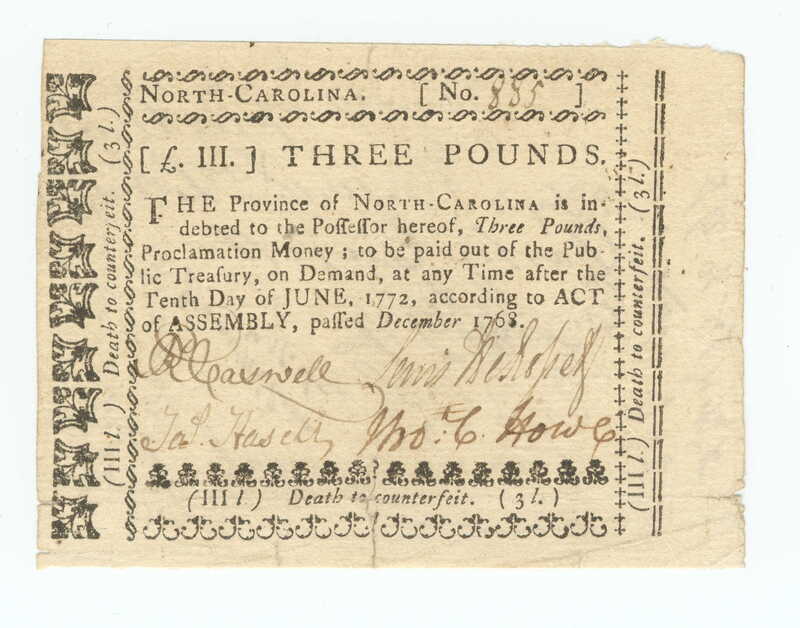 NORTH-CAROLINA. [ No. 885 ]
[ £. III. ] THREE POUNDS.
THE Province of NORTH-CAROLINA is in-
debted to the Poſſeſſor hereof, Three Pounds,
Proclamation Money ; to be paid out of the Pub-
lic Treaſury, on Demand, at any Time after the
Tenth Day of JUNE, 1772, according to ACT
of ASSEMBLY, paſſed December 1768.
RCaswell Lewis
Jas. Hasell, Tho: C. Howe
(III l.) Death to counterfeit. (3 l.)
(III l.) Death to counterfeit. (3 l.)
(III l.) Death to counterfeit. (3 l.)